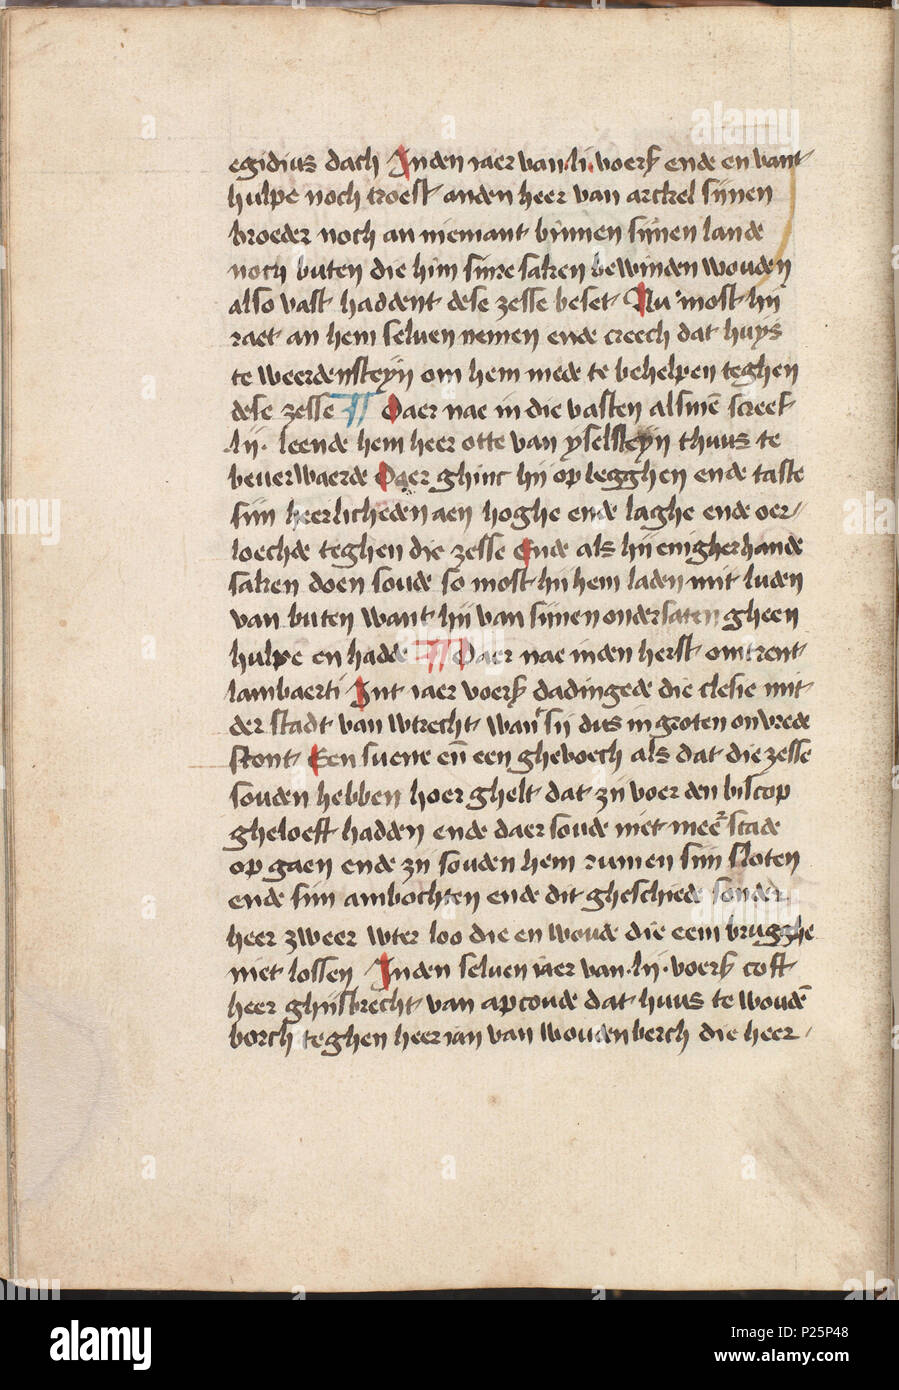 egidius dach Inden iaer van .li. voers ende en vant
hulpe noch troest anden heer van arckel sijnen
broeder noch an niemant bynnen sijnen lande
noch buten die him sinre saken bewinden wouden
also vast haddent dese zesse beset Nu most hij
raet an hem seluen nemen ende creech dat huys
te weerdensteyn om hem mede te behelpen teghen
dese zesse Daer nae in die vasten alsmē screef
.lij. leende hem heer otte van yselsteyn thuus te
beuerwaerde Daer ghinc hij op legghen ende taste
sijn heerlicheden aen hoghe ende laghe ende oer
loechde teghen die zesse Ende als hij enigherhande
saken doen soude so most hij hem laden mit luden
van buten want hij van sijnen ondersaten gheen
hulpe en hadde Daer nae inden herfst omtrent
lambaerti Int iaer voers dadingede die clesie mit
der stadt van wtrecht want sij dus in groten onvrede
stont Een suene eñ een ghevoech als dat die zesse
souden hebben hoer ghelt dat zij voer den biscop
gheloeft hadden ende daer soude niet meer stade
op gaen ende zij souden hem rumen sijn sloten
ende sijn ambochten ende dit gheschiede sonder
heer zweer wter loo die en woude die eem brugghe
niet lossen Inden seluen iaer van .lij. voers coft
heer ghijsbrecht van apcoude dat huus te woudē
borch teghen heer ian van woudenberch die heer
alamy
P25P48
www.alamy.com